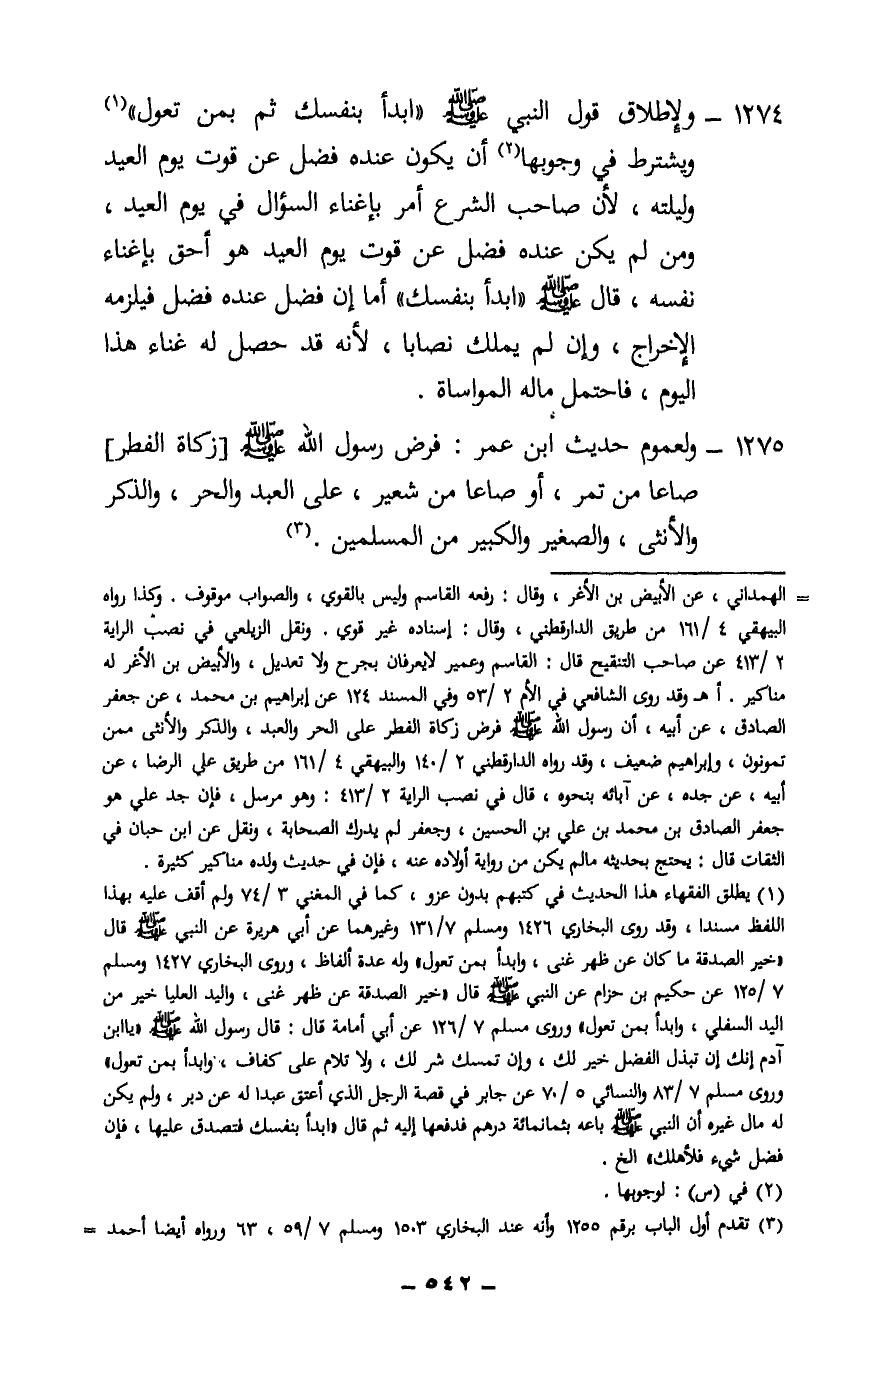 ١٢٧٤ – ولإطلاق قول النبي ﷺ «ابدأ بنفسك ثم بمن تعول»(١)
ويشترط في وجوبها(٢) أن يكون عنده فضل عن قوت يوم العيد
وليلته ، لأن صاحب الشرع أمر بإغناء السؤال في يوم العيد ،
ومن لم يكن عنده فضل عن قوت يوم العيد هو أحق بإغناء
نفسه ، قال ﷺ «ابدأ بنفسك» أما إن فضل عنده فضل فيلزمه
الإخراج ، وإن لم يملك نصابا ، لأنه قد حصل له غناء هذا
اليوم ، فاحتمل ماله المواساة .
١٢٧٥ – ولعموم حديث ابن عمر : فرض رسول الله ﷺ [زكاة الفطر]
صاعا من تمر ، أو صاعا من شعير ، على العبد والحر ، والذكر
والأنثى ، والصغير والكبير من المسلمين .(٣)
= الهمداني ، عن الأبيض بن الأغر ، وقال : رفعه القاسم وليس بالقوي ، والصواب موقوف . وكذا رواه
البيهقي ٤ /١٦١ من طريق الدارقطني ، وقال : إسناده غير قوي . ونقل الزيلعي في نصب الراية
٢ /٤١٣ عن صاحب التنقيح قال : القاسم وعمير لايعرفان بجرح ولا تعديل ، والأبيض بن الأغر له
مناكير . أ هـ وقد روى الشافعي في الأم ٢ /٥٣ وفي المسند ١٢٤ عن إبراهيم بن محمد ، عن جعفر
الصادق ، عن أبيه ، أن رسول الله ﷺ فرض زكاة الفطر على الحر والعبد ، والذكر والأنثى ممن
تمونون ، وإبراهيم ضعيف ، وقد رواه الدارقطني ٢ /١٤٠ والبيهقي ٤ /١٦١ من طريق علي الرضا ، عن
أبيه ، عن جده ، عن آبائه بنحوه ، قال في نصب الراية ٢ /٤١٣ : وهو مرسل ، فإن جد علي هو
جعفر الصادق بن محمد بن علي بن الحسين ، وجعفر لم يدرك الصحابة ، ونقل عن ابن حبان في
الثقات قال : يحتج بحديثه مالم يكن من رواية أولاده عنه ، فإن في حديث ولده مناكير كثيرة .
(١) يطلق الفقهاء هذا الحديث في كتبهم بدون عزو ، كما في المغني ٣ /٧٤ ولم أقف عليه بهذا
اللفظ مسندا ، وقد روى البخاري ١٤٢٦ ومسلم ١٣١/٧ وغيرهما عن أبي هريرة عن النبي ﷺ قال
«خير الصدقة ما كان عن ظهر غنى ، وابدأ بمن تعول» وله عدة ألفاظ ، وروى البخاري ١٤٢٧ ومسلم
٧ /١٢٥ عن حكيم بن حزام عن النبي ﷺ قال «خير الصدقة عن ظهر غنى ، واليد العليا خير من
اليد السفلي ، وابدأ بمن تعول» وروى مسلم ٧ /١٢٦ عن أبي أمامة قال : قال رسول الله ﷺ «ياابن
آدم إنك إن تبذل الفضل خير لك ، وإن تمسك شر لك ، ولا تلام على كفاف ، وابدأ بمن تعول»
وروى مسلم ٧ /٨٣ والنسائي ٥ /٧٠ عن جابر في قصة الرجل الذي أعتق عبدا له عن دبر ، ولم يكن
له مال غيره أن النبي ﷺ باعه بثمانمائة درهم فدفعها إليه ثم قال «ابدأ بنفسك فتصدق عليها ، فإن
فضل شيء فلأهلك» الخ .
(٢) في (س) : لوجوبها .
(٣) تقدم أول الباب برقم ١٢٥٥ وأنه عند البخاري ١٥٠٣ ومسلم ٧ /٥٩ ، ٦٣ ورواه أيضا أحمد =
– ٥٤٢ –